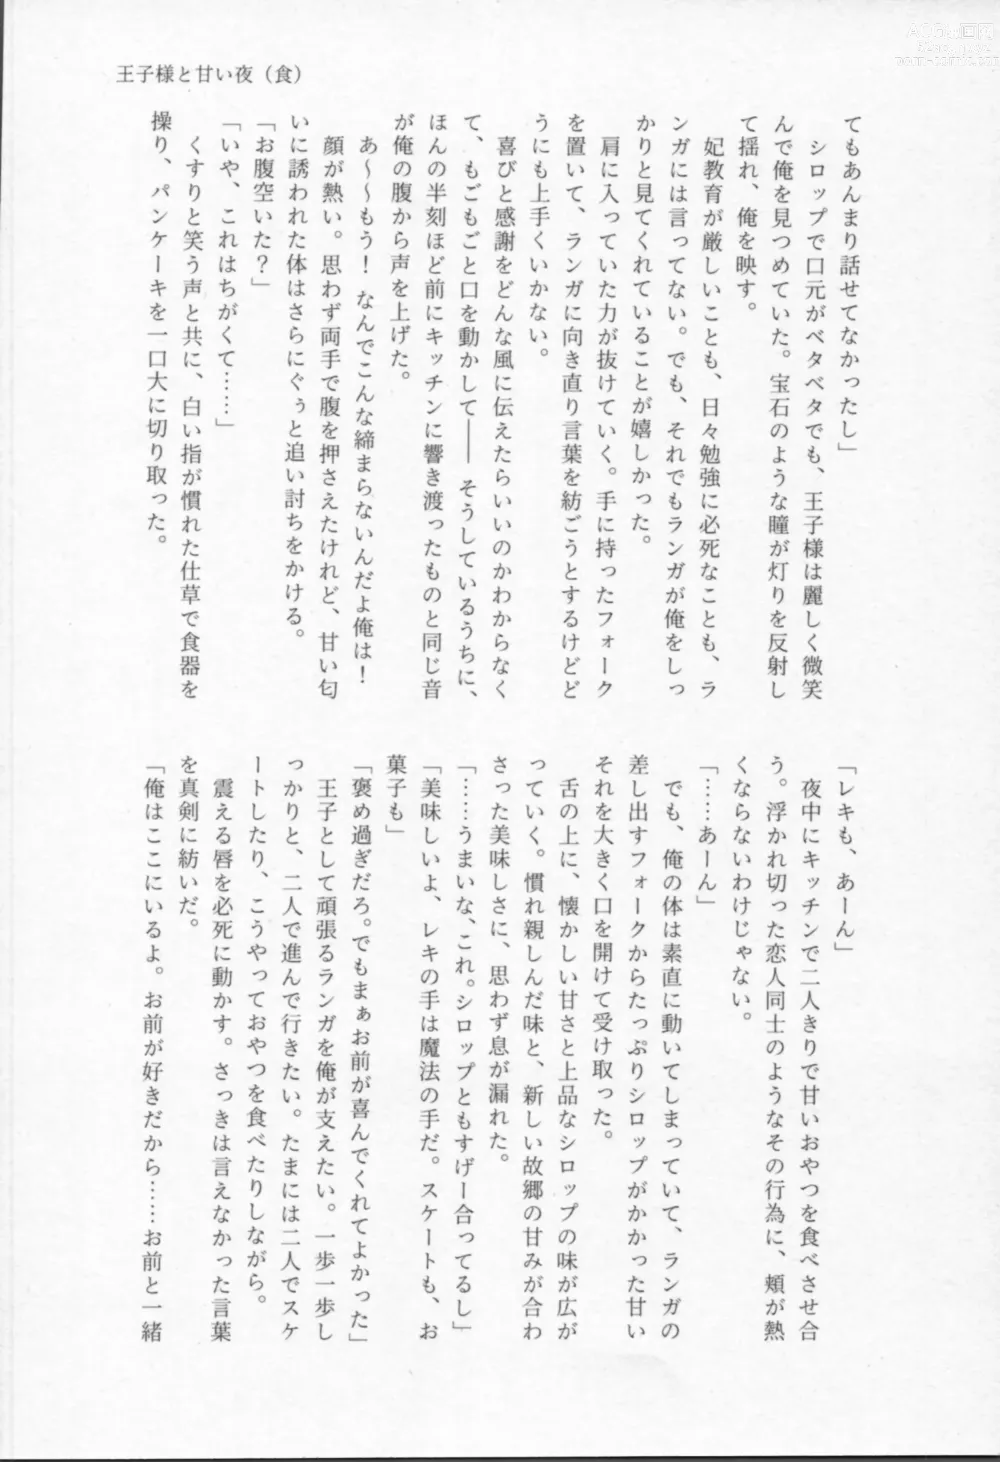 王子様と甘い夜（食）
てもあんまり話せてなかったし」
シロップで口元がベタベタでも、王子様は麗しく微笑
んで俺を見つめていた。宝石のような瞳が灯りを反射し
て揺れ、俺を映す。
妃教育が厳しいことも、日々勉強に必死なことも、ラ
ンガには言ってない。でも、それでもランガが俺をしっ
かりと見てくれていることが嬉しかった。
肩に入っていた力が抜けていく。手に持ったフォーク
を置いて、ランガに向き直り言葉を紡ごうとするけどど
うにも上手くいかない。
喜びと感謝をどんな風に伝えたらいいのかわからなく
て、もごもごと口を動かして――そうしているうちに、
ほんの半刻ほど前にキッチンに響き渡ったものと同じ音
が俺の腹から声を上げた。
あ〜〜もう！　なんでこんな締まらないんだよ俺は！
顔が熱い。思わず両手で腹を押さえたけれど、甘い匂
いに誘われた体はさらにぐぅと追い討ちをかける。
「お腹空いた？」
「いや、これはちがくて……」
くすりと笑う声と共に、白い指が慣れた仕草で食器を
操り、パンケーキを一口大に切り取った。
「レキも、あーん」
夜中にキッチンで二人きりで甘いおやつを食べさせ合
う。浮かれ切った恋人同士のようなその行為に、頬が熱
くならないわけじゃない。
「……あーん」
でも、俺の体は素直に動いてしまっていて、ランガの
差し出すフォークからたっぷりシロップがかかった甘い
それを大きく口を開けて受け取った。
舌の上に、懐かしい甘さと上品なシロップの味が広が
っていく。慣れ親しんだ味と、新しい故郷の甘みが合わ
さった美味しさに、思わず息が漏れた。
「……うまいな、これ。シロップともすげー合ってるし」
「美味しいよ、レキの手は魔法の手だ。スケートも、お
菓子も」
「褒め過ぎだろ。でもまぁお前が喜んでくれてよかった」
王子として頑張るランガを俺が支えたい。一歩一歩し
っかりと、二人で進んで行きたい。たまには二人でスケ
ートしたり、こうやっておやつを食べたりしながら。
震える唇を必死に動かす。さっきは言えなかった言葉
を真剣に紡いだ。
「俺はここにいるよ。お前が好きだから……お前と一緒